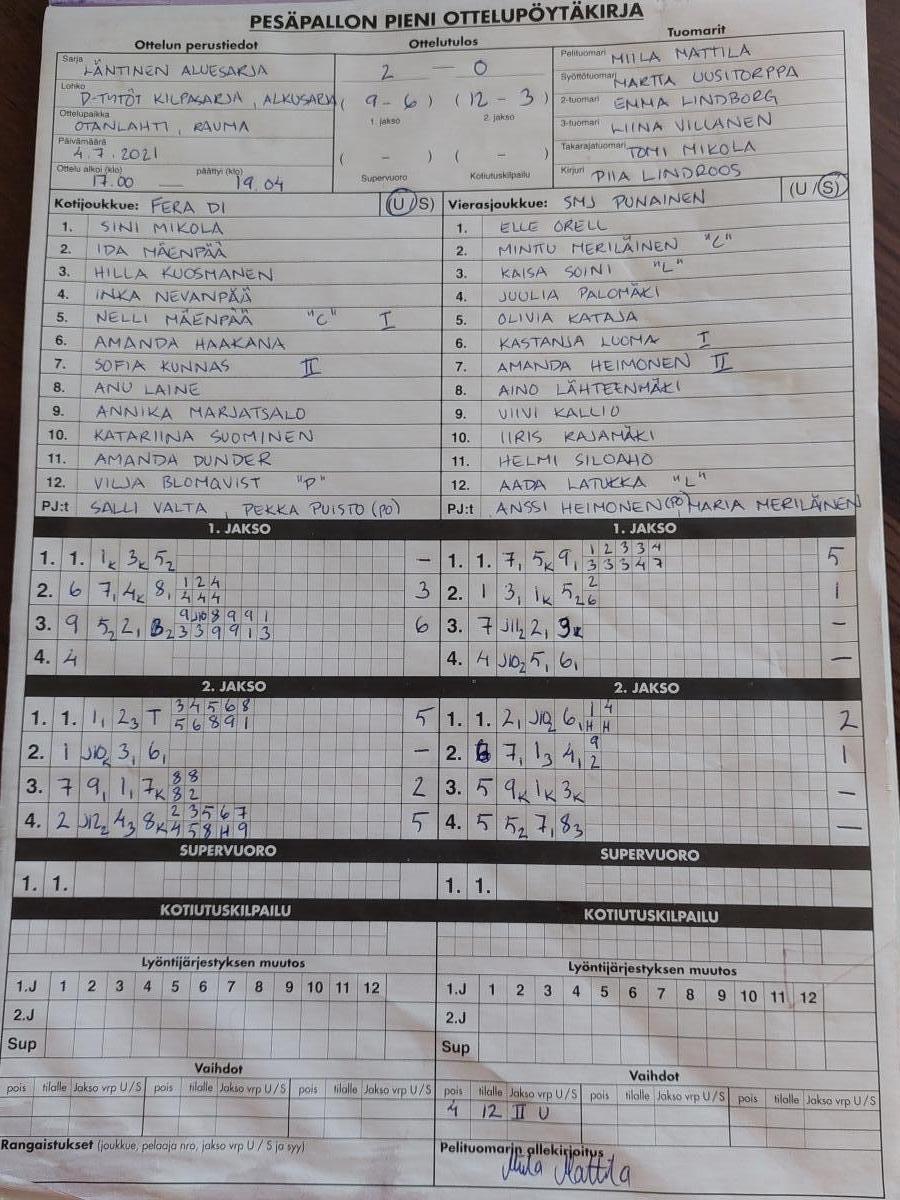 PESÄPALLON PIENI OTTELUPÖYTÄKIRJA
Ottelun perustiedot
Sarja
LÄNTINEN ALUESARJA
Lohko
D-TYTÖT KILPASARJA, ALKUSARJA
Ottelupaikka
OTANLAHTI, RAUMA
Päivämäärä
4.7.2021
Ottelu alkoi (klo) päättyi (klo)
17.00 — 19.04
Ottelutulos
2 — 0
(9-6) (12-3)
1. jakso 2. jakso
( - ) ( - )
Supervuoro Kotiutuskilpailu
Tuomarit
Pelituomari MIILA MATTILA
Syöttötuomari MARTTA UUSITORPPA
2-tuomari EMMA LINDBORG
3-tuomari LIINA VILLANEN
Takarajatuomari TOMI MIKOLA
Kirjuri PIIA LINDROOS
Kotijoukkue: FERA D1 (U/S)
1. SINI MIKOLA
2. IDA MÄENPÄÄ
3. HILLA KUOSMANEN
4. INKA NEVANPÄÄ
5. NELLI MÄENPÄÄ "C" I
6. AMANDA HAAKANA
7. SOFIA KUNNAS II
8. ANU LAINE
9. ANNIKA MARJATSALO
10. KATARIINA SUOMINEN
11. AMANDA DUNDER
12. VILJA BLOMQVIST "P"
PJ:t SALLI VALTA, PEKKA PUISTO (PO)
Vierasjoukkue: SMJ PUNAINEN (U/S)
1. ELLE ORELL
2. MINTTU MERILÄINEN "C"
3. KAISA SOINI "L"
4. JUULIA PALOMÄKI
5. OLIVIA KATAJA
6. KASTANJA LUOMA I
7. AMANDA HEIMONEN II
8. AINO LÄHTEENMÄKI
9. VIIVI KALLIO
10. IIRIS RAJAMÄKI
11. HELMI SILOAHO
12. AADA LATUKKA "L"
PJ:t ANSSI HEIMONEN (PO) MARIA MERILÄINEN
1. JAKSO
1. 1. 1K 3K 52 —
2. 6 71 4K 81 1 2 4 3
4 4 4
3. 9 52 21 B2 9 J10 8 9 9 1 6
3 3 9 9 1 3
4. 4
1. JAKSO
1. 1. 71 5K 91 1 2 3 3 4 5
3 3 3 4 7
2. 1 31 1K 52 2 1
6
3. 7 J112 21 9K —
4. 4 J102 51 61 —
2. JAKSO
1. 1. 11 23 T 3 4 5 6 8 5
5 6 8 9 1
2. 1 J10K 31 61 —
3. 7 91 11 7K 8 8 2
8 2
4. 2 J122 43 8K 2 3 5 6 7 5
4 5 8 H 9
2. JAKSO
1. 1. 21 J102 61 1 4 2
H H
2. 6 71 13 41 9 1
2
3. 5 9K 1K 3K —
4. 5 52 71 83 —
SUPERVUORO
1. 1.
SUPERVUORO
1. 1.
KOTIUTUSKILPAILU
KOTIUTUSKILPAILU
Lyöntijärjestyksen muutos
1.J 1 2 3 4 5 6 7 8 9 10 11 12
2.J
Sup
Lyöntijärjestyksen muutos
1.J 1 2 3 4 5 6 7 8 9 10 11 12
2.J
Sup
Vaihdot
pois tilalle Jakso vrp U/S pois tilalle Jakso vrp U/S pois tilalle Jakso vrp U/S
Vaihdot
pois tilalle Jakso vrp U/S pois tilalle Jakso vrp U/S pois tilalle Jakso vrp U/S
4 12 II U
Rangaistukset (joukkue, pelaaja nro, jakso vrp U / S ja syy)
Pelituomarin allekirjoitus
Miila Mattila